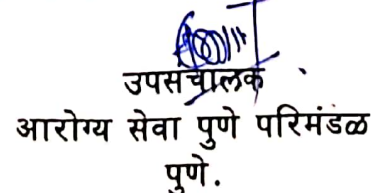 उपसंचालक
आरोग्य सेवा पुणे परिमंडळ
पुणे.